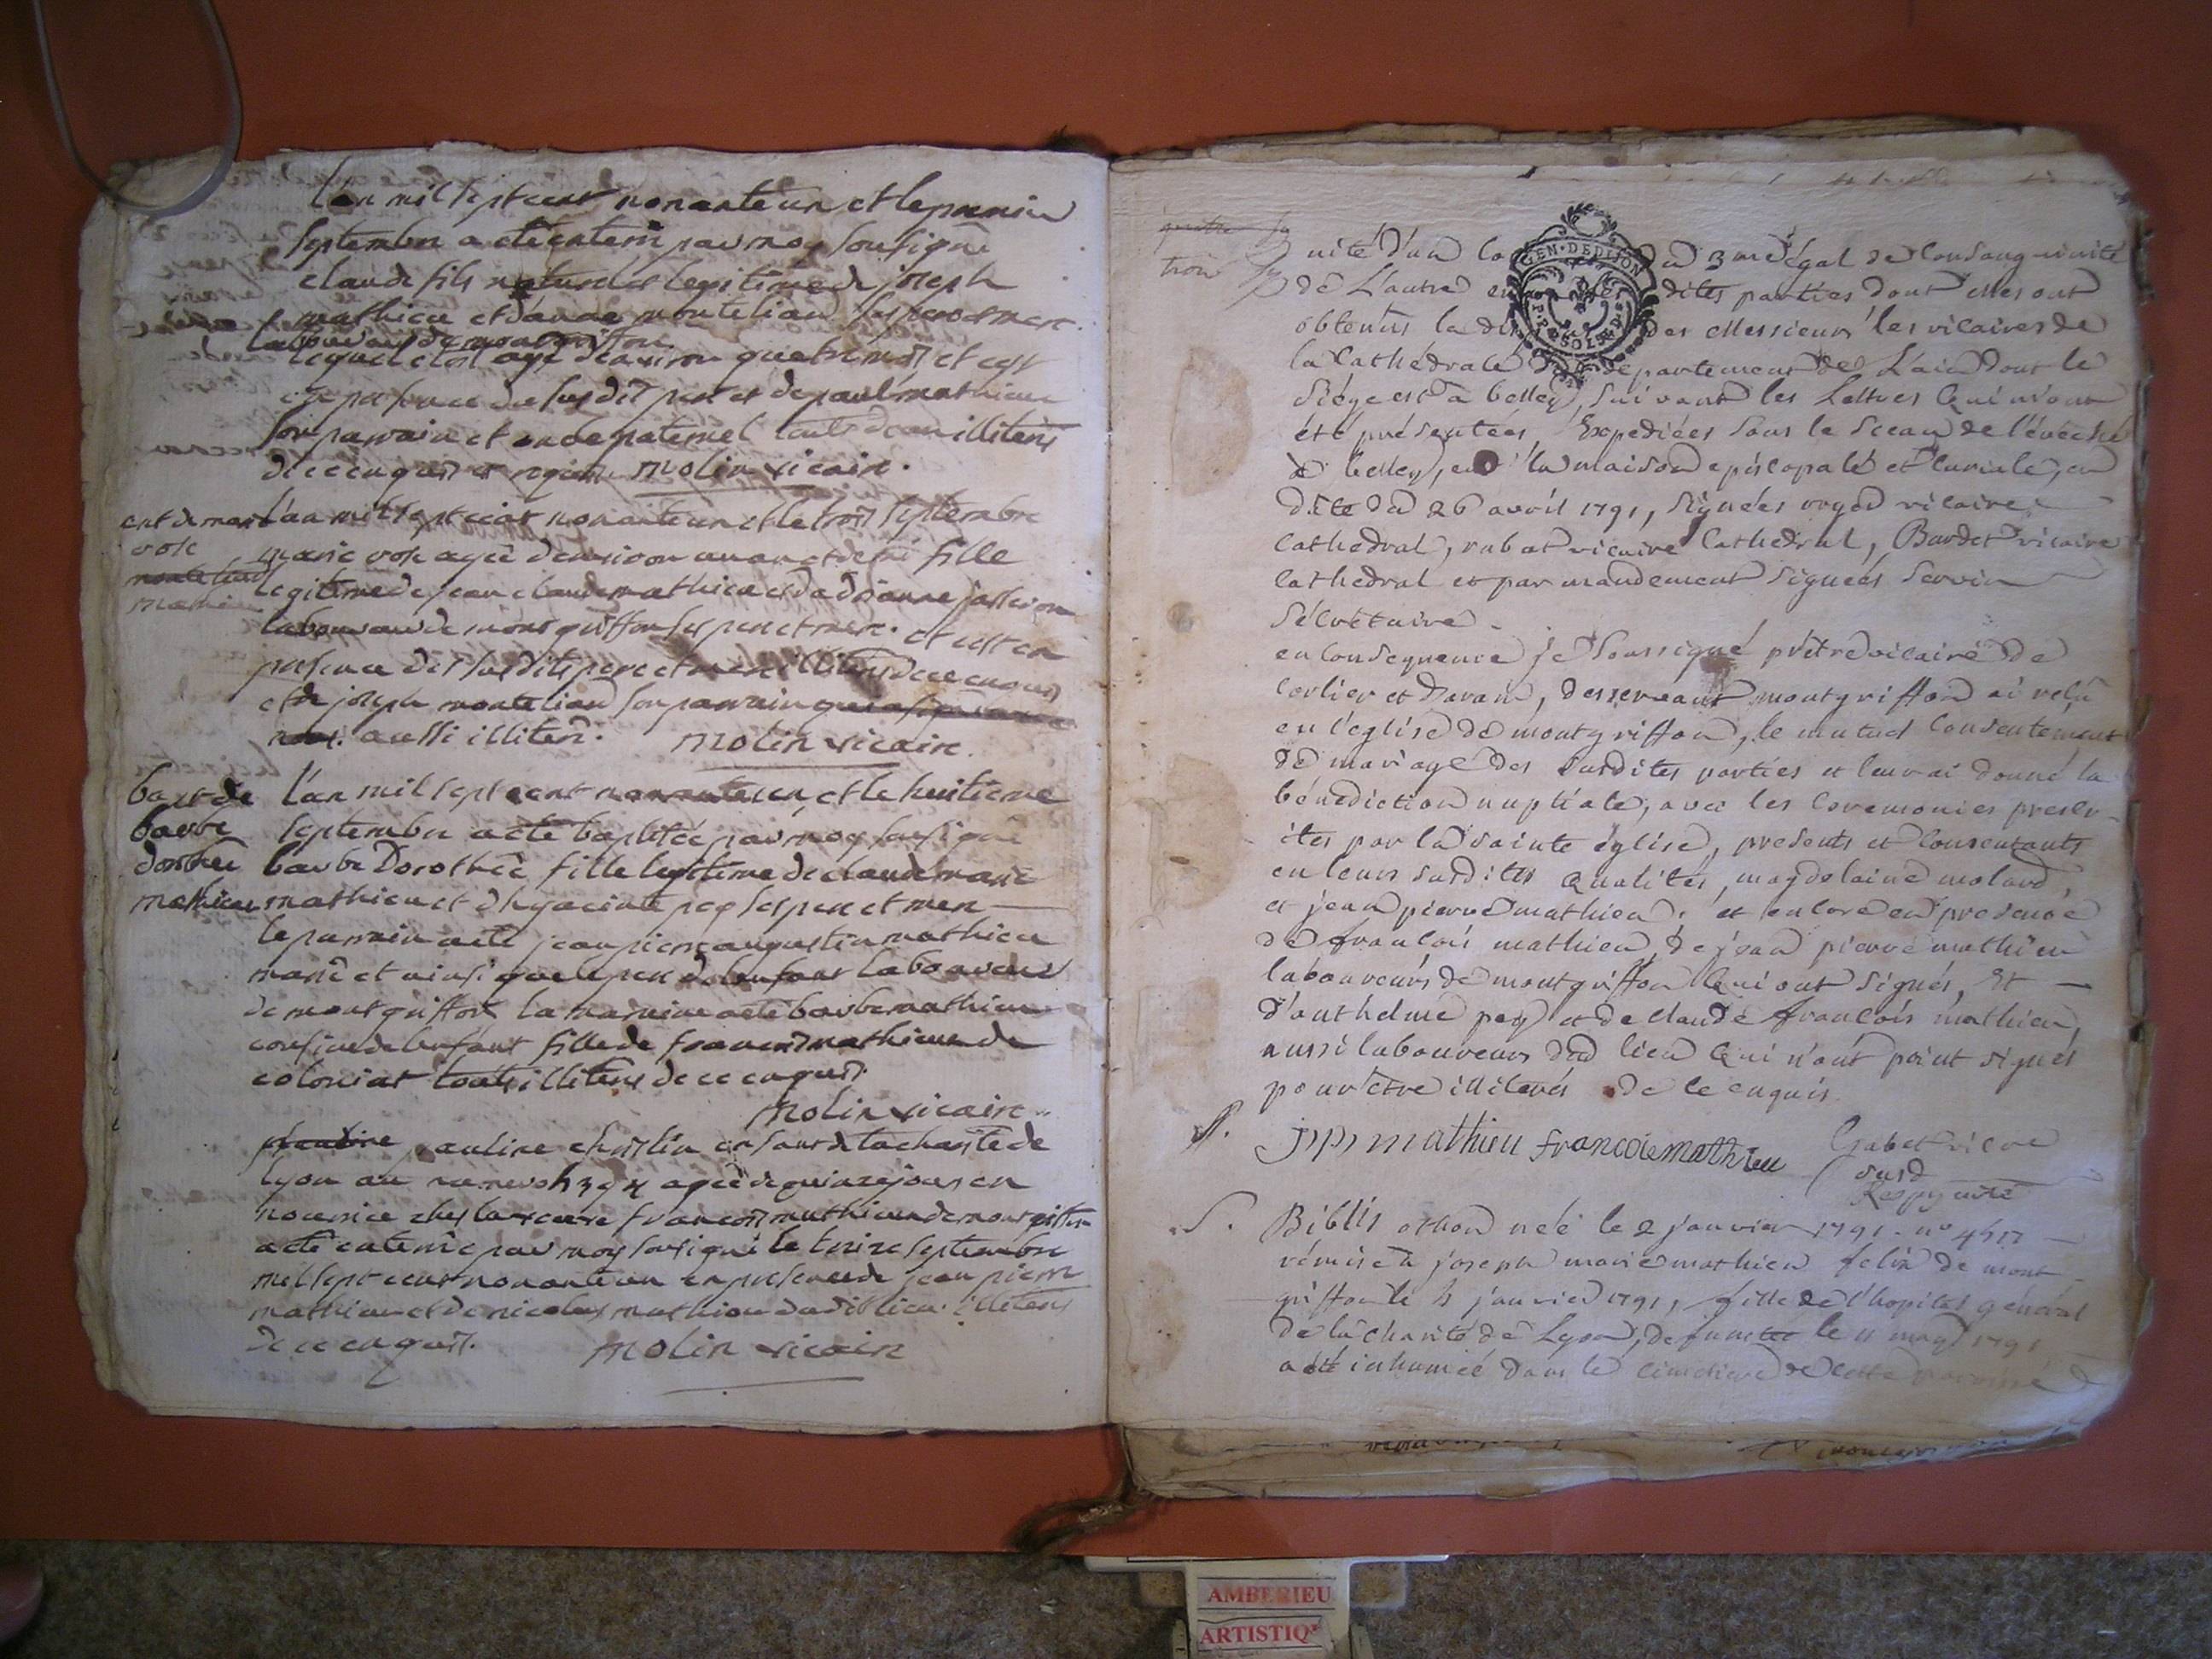 l'an mil sept cent nonante un et le premier
septembre a eté enterré par moy sousigné
claude fils naturel et legitime de joseph
mathieu et d'anne montelian ses pere et mere
laboureurs de montgriffon
lequel etoit agé d'environ quatre mois et cest
en presence du susdit pere et de paul mathieu
son parrain et oncle paternel touts deux illiterés
de ce enquis et requis molin vicaire.
ent de marie
rose
montelian
mathieu
l'an mil sept cent nonante un et le trois septembre
marie rose agée d'environ un an et demi fille
legitime de jean claude mathieu et de
laboureurs de montgriffon ses pere et mere. et cest en
presence des susdits pere et mere illiterés de ce enquis
et de joseph montelian son parrain
nous. aussi illiteré. molin vicaire.
bapt de
barbe
dorothée
mathieu
l'an mil sept cent nonante un et le huitieme
septembre a eté baptisée par moy sousigné
barbe Dorothée fille legitime de claude marie
mathieu et d'hyacinte pey ses pere et mere
le parrain a eté jean pierre augustin mathieu
marié et ainsi que le pere de l'enfant laboureurs
de montgriffon la marraine a eté barbe mathieu
cousine de l'enfant fille de francois mathieu de
coloniat touts illiterés de ce enquis.
molin vicaire.
pauline christin enfant de la charité de
lyon au agée de quinze jours en
nourrice chez la veuve francois mathieu de montgriffon
a eté enterrée par moy sousigné le treize septembre
mil sept cent nonante un en presence de jean pierre
mathieu et de nicolas mathieu dudit lieu. illiterés
de ce enquis. molin vicaire
quatre
trois
nité d'un du 3me égal de consanguinité
de L'autre dites parties dont elles ont
obtenus la des Messieurs les vicaires de
la cathédrale departement de L'ain dont le
siége est à belley, suivant les Lettres qui m'ont
été présentées, Expediées sous le sceau de l'évéché
de belley, en la maison episcopale et curiale, en
date du 26 avril 1791, signées vicaire
cathedral, rubat vicaire cathédral, Burdet vicaire
cathedral et par mandement signées servin
secrétaire.
en conséquence je soussigné prétre vicaire de
corlier et d'aranc, desservant montgriffon ai reçu
en l'eglise de montgriffon, le mutuel consentement
de mariage des susdites parties et leur ai donné la
bénediction nuptiale, avec les ceremonies prescr-
ites par la sainte église, presents et consentants
en leurs susdites qualités, magdelaine molard,
et jean pierre mathieu; et encore en presence
de françois mathieu, de jean pierre mathieu
laboureurs de montgriffon qui ont signés, Et
d'anthelme pey et de claude françois mathieu,
aussi laboureurs dud lieu qui n'ont point signés
pour être illiterés de ce enquis.
jp mathieu francoie mathieu
S. Biblis othon née le 2 janvier 1791. no 4517
rémise à joseph marie mathieu felix de mont
griffon le 4 janvier 1791, fille de l'hopital général
de la charité de Lyon, defunctée le 11 may 1791
a été inhumée dans le cimetiere de cette paroisse
GEN·DE DIJON
AMBERIEU
ARTISTIQ